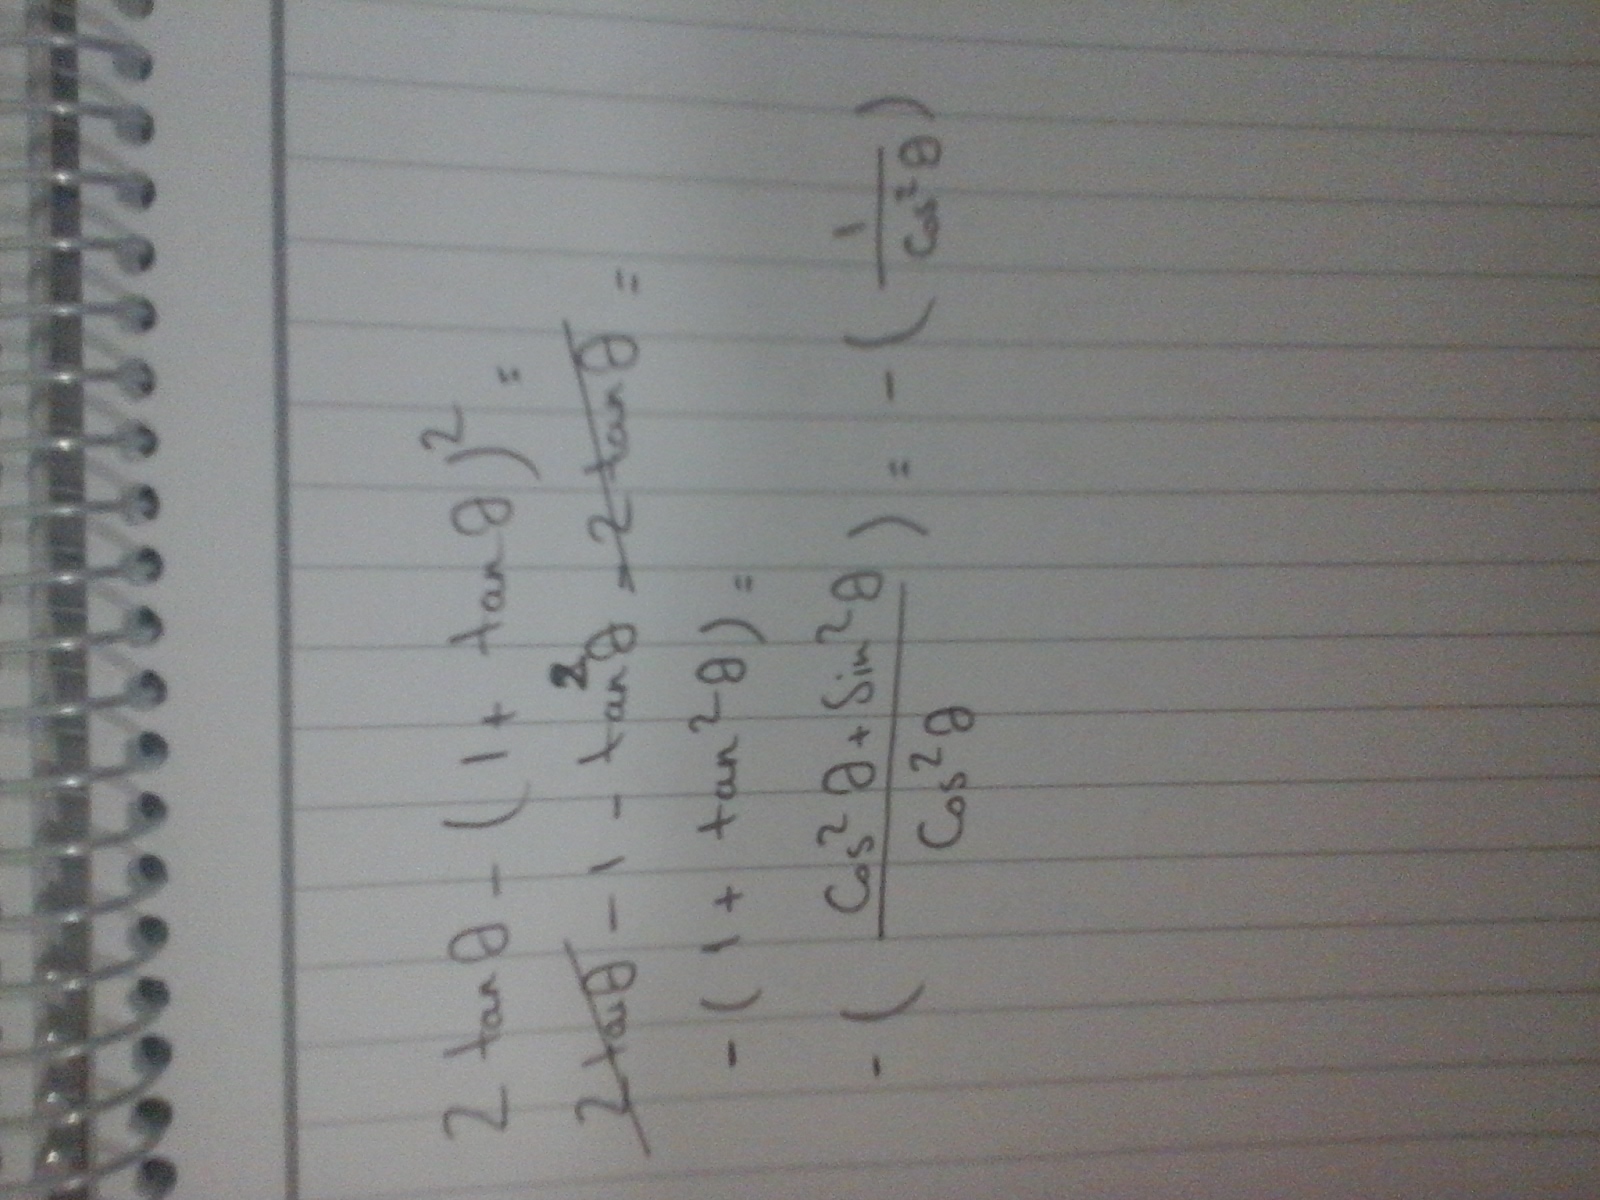 2 tanθ - (1 + tanθ)² =
2 tanθ - 1 - tan²θ - 2 tanθ =
- (1 + tan²θ) =
- (cos²θ + sin²θ / cos²θ) = - (1 / cos²θ)